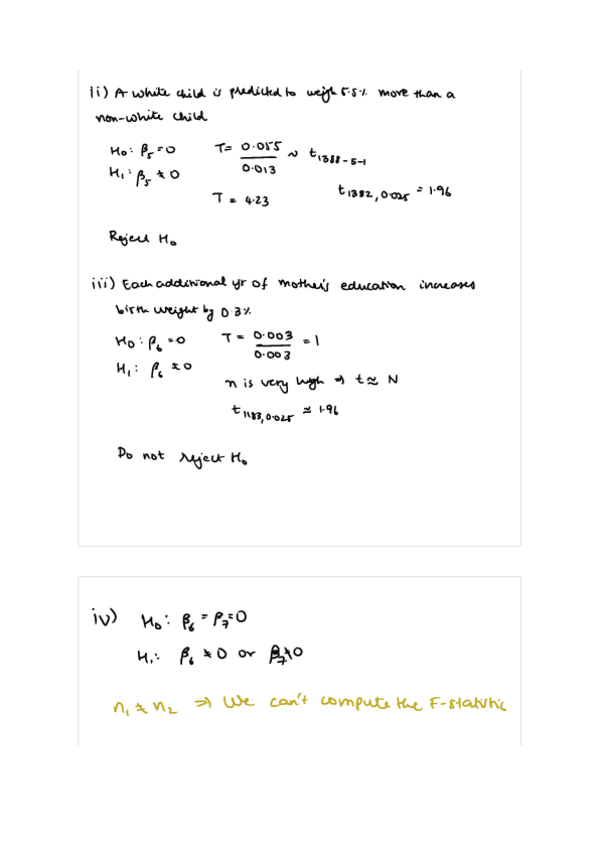 ii) A white child is predicted to weigh 5.5% more than a
non-white child
H₀: β₅ = 0 T = 0.055 / 0.013 ~ t₁₃₈₈₋₅₋₁
H₁: β₅ ≠ 0
T = 4.23 t₁₃₈₂,₀.₀₂₅ = 1.96
Reject H₀
iii) Each additional yr of mother's education increases
birth weight by 0.3%
H₀: β₆ = 0 T = 0.003 / 0.003 = 1
H₁: β₆ ≠ 0
n is very high ⇒ t ≈ N
t₁₁₈₃,₀.₀₂₅ ≈ 1.96
Do not reject H₀
iv) H₀: β₆ = β₇ = 0
H₁: β₆ ≠ 0 or β₇ ≠ 0
n₁ ≠ n₂ ⇒ We can't compute the F-statistic